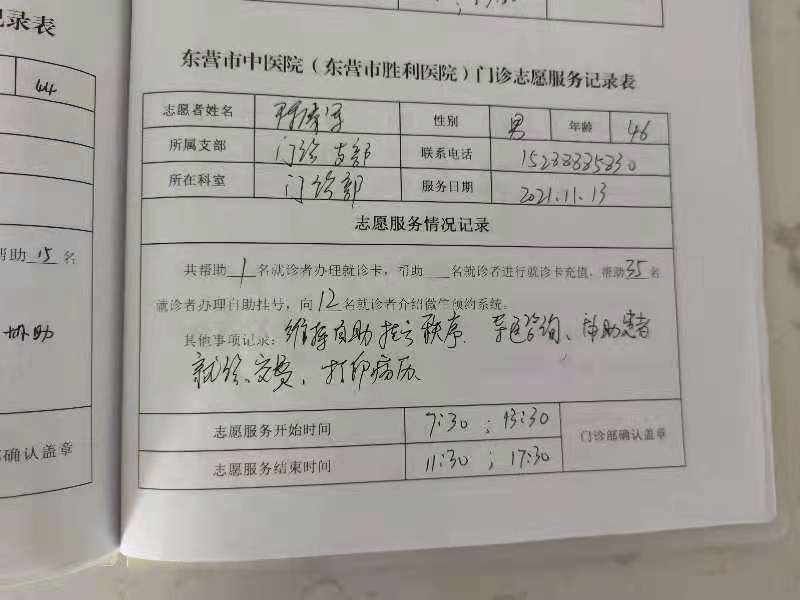 录表
44
帮助 15 名
协助
部确认盖章
东营市中医院（东营市胜利医院）门诊志愿服务记录表
志愿者姓名 性别 男 年龄 46
所属支部 门诊支部 联系电话
所在科室 门诊部 服务日期 2021.11.13
志愿服务情况记录
共帮助 1 名就诊者办理就诊卡，帮助 名就诊者进行就诊卡充值，帮助 35 名
就诊者办理自助挂号，向 12 名就诊者介绍微信预约系统。
其他事项记录：维持自助挂号秩序、导医咨询、帮助患者
就诊、交费、打印病历
志愿服务开始时间 7:30 ； 13:30 门诊部确认盖章
志愿服务结束时间 11:30 ； 17:30